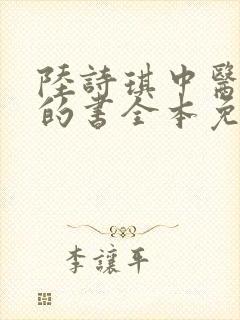 陸詩琪中醫
的書全本免
李讓平